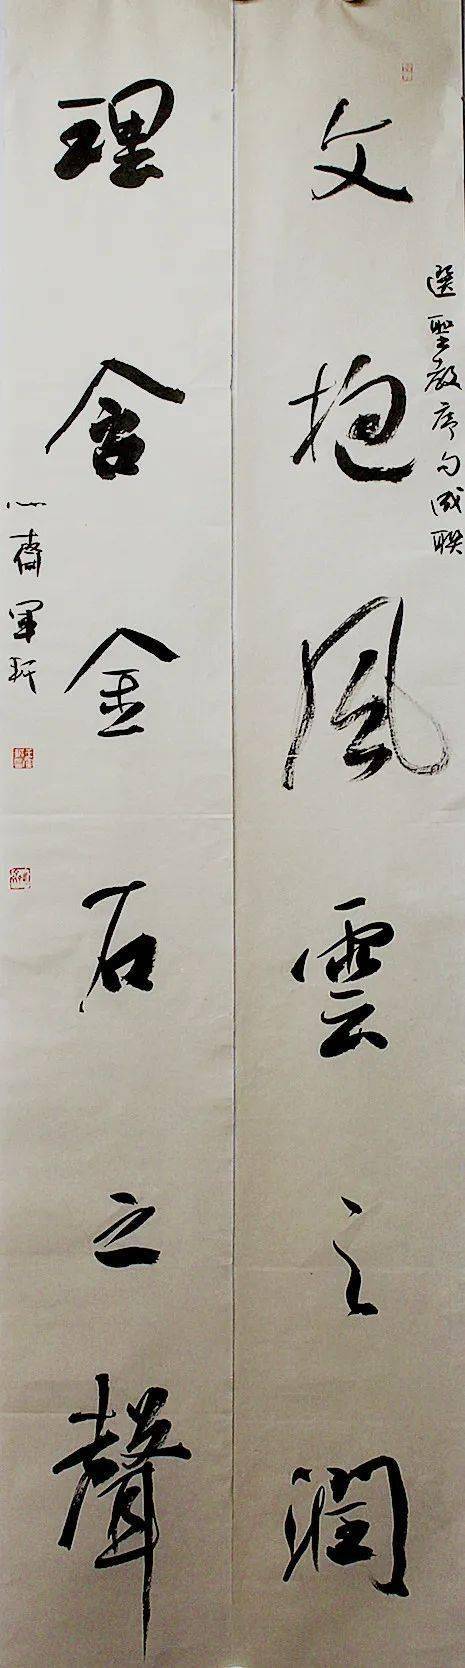 文抱風雲之潤
選聖教序句成聯
理含金石之聲
心齋軍